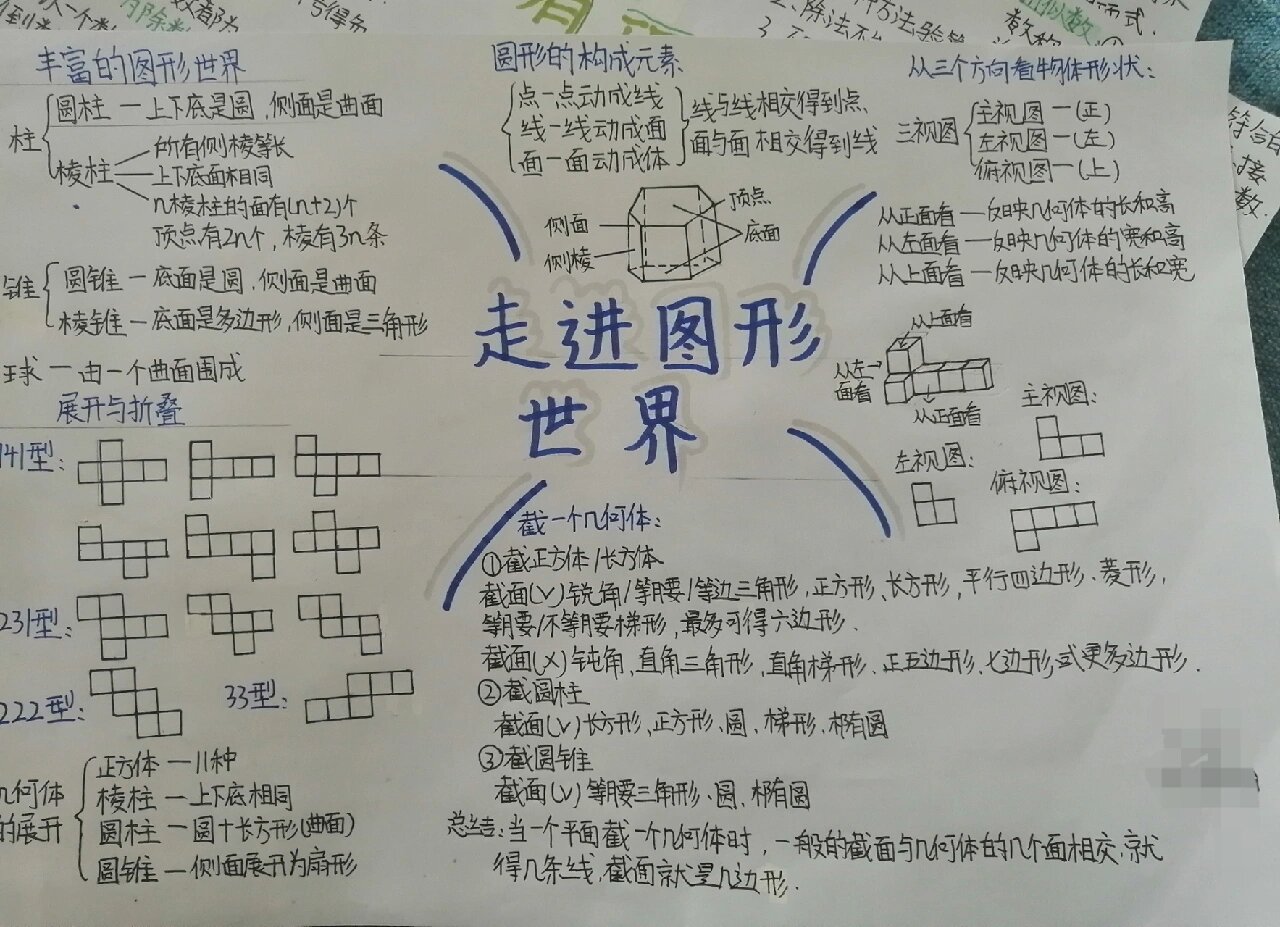 丰富的图形世界
柱
圆柱 — 上下底是圆,侧面是曲面
棱柱
所有侧棱等长
上下底面相同
n棱柱的面有(n+2)个
顶点有2n个,棱有3n条
锥
圆锥 — 底面是圆,侧面是曲面
棱锥 — 底面是多边形,侧面是三角形
球 — 由一个曲面围成
展开与折叠
141型:
231型:
222型:
33型:
几何体
的展开
正方体 — 11种
棱柱 — 上下底相同
圆柱 — 圆+长方形(曲面)
圆锥 — 侧面展开为扇形
圆形的构成元素
点—点动成线
线—线动成面
面—面动成体
线与线相交得到点、
面与面相交得到线
顶点
侧面
底面
侧棱
走进图形
世界
从三个方向看物体形状:
三视图
主视图—(正)
左视图—(左)
俯视图—(上)
从正面看 — 反映几何体的长和高
从左面看 — 反映几何体的宽和高
从上面看 — 反映几何体的长和宽
从上面看
从左
面看
从正面看
主视图:
左视图:
俯视图:
截一个几何体:
①截正方体/长方体
截面(√)锐角/等腰/等边三角形,正方形、长方形,平行四边形、菱形,
等腰/不等腰梯形,最多可得六边形.
截面(×)钝角、直角三角形,直角梯形、正五边形、七边形,或更多边形.
②截圆柱
截面(√)长方形、正方形、圆、梯形、椭圆
③截圆锥
截面(√)等腰三角形、圆、椭圆
总结:当一个平面截一个几何体时,一般的截面与几何体的几个面相交,就
得几条线,截面就是几边形.